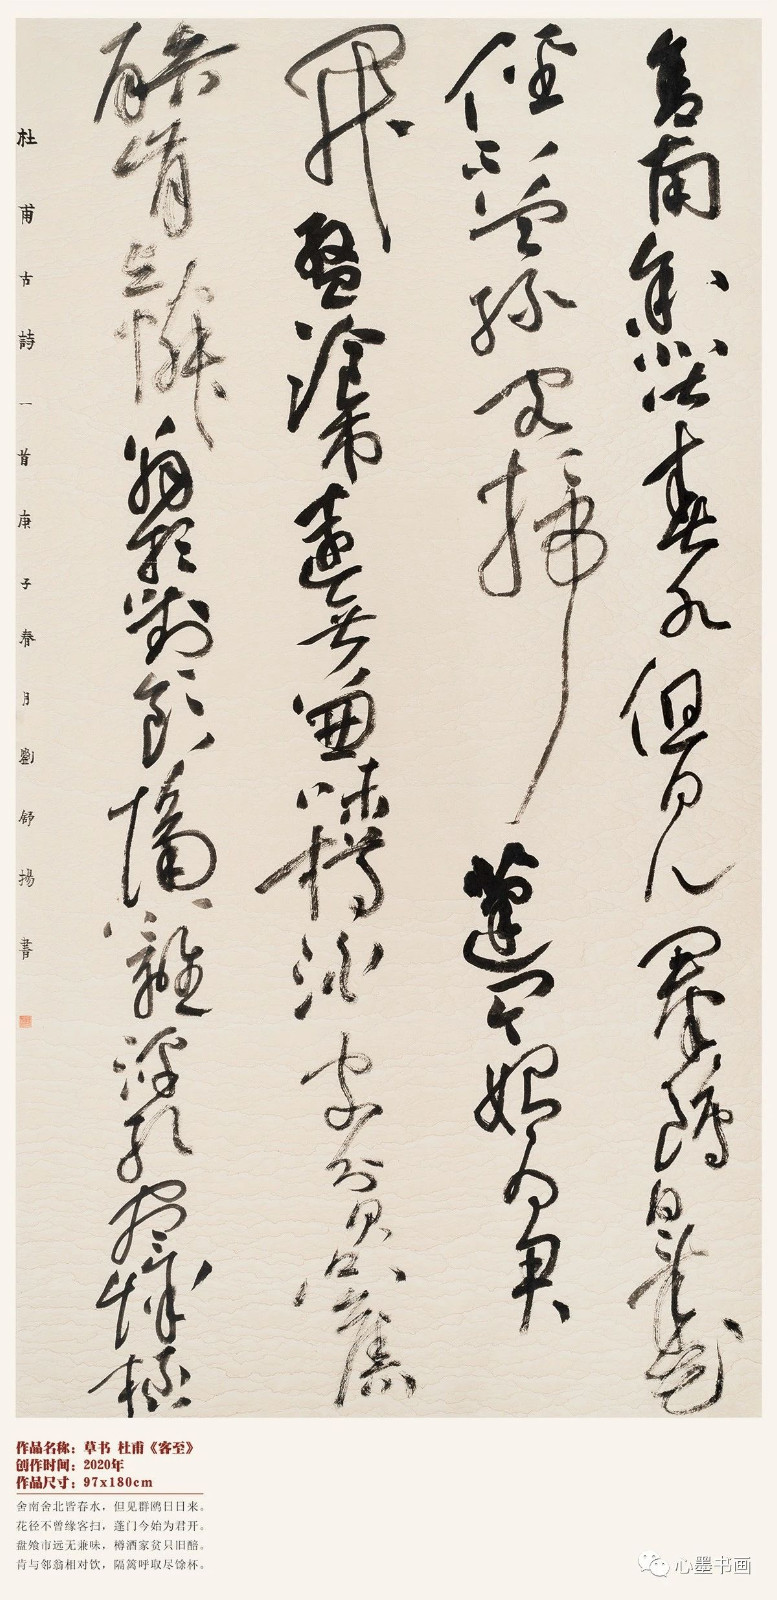 舍南舍北皆春水但見群鷗日日來花
徑不曾緣客掃蓬門今始為君
開盤飧市遠無兼味樽酒家貧只舊
醅肯與鄰翁相對飲隔籬呼取盡餘杯
杜甫古詩一首庚子春月劉舒揚書
作品名称：草书 杜甫《客至》
创作时间：2020年
作品尺寸：97x180cm
舍南舍北皆春水，但见群鸥日日来。
花径不曾缘客扫，蓬门今始为君开。
盘飧市远无兼味，樽酒家贫只旧醅。
肯与邻翁相对饮，隔篱呼取尽馀杯。
心墨书画